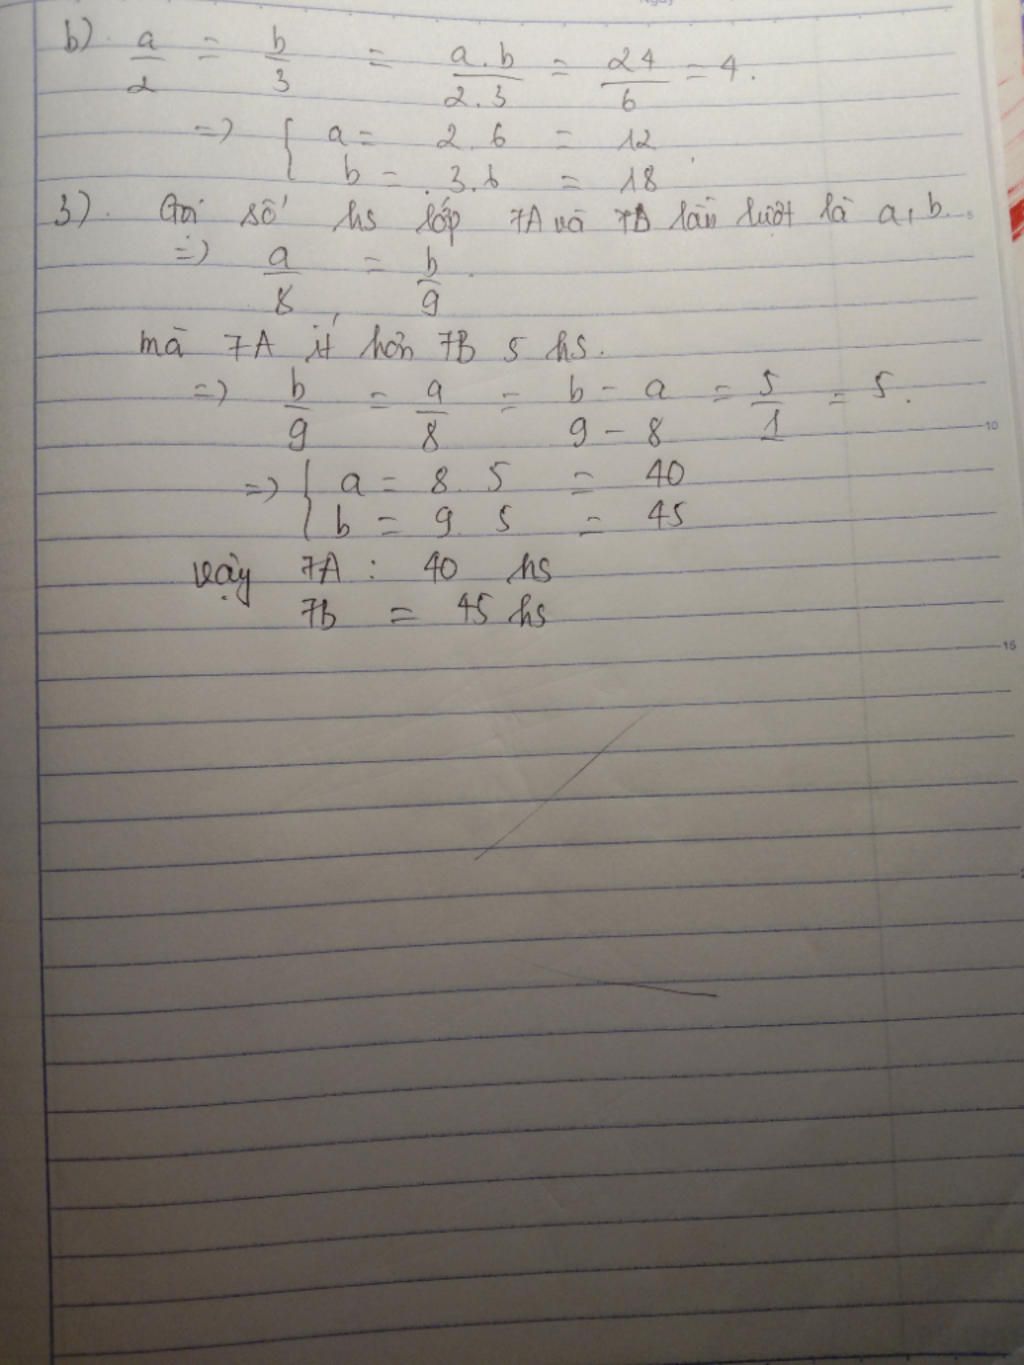 b) a/2 = b/3 = a.b/2.3 = 24/6 = 4.
=> { a = 2.6 = 12
b = .3.6 = 18
3). Gọi số hs lớp 7A và 7B lần lượt là a, b.
=> a/8 = b/9.
mà 7A ít hơn 7B 5 hs.
=> b/9 = a/8 = b - a / 9 - 8 = 5/1 = 5.
=> { a = 8.5 = 40
b = 9.5 = 45
vậy 7A : 40 hs
7B = 45 hs
10
15